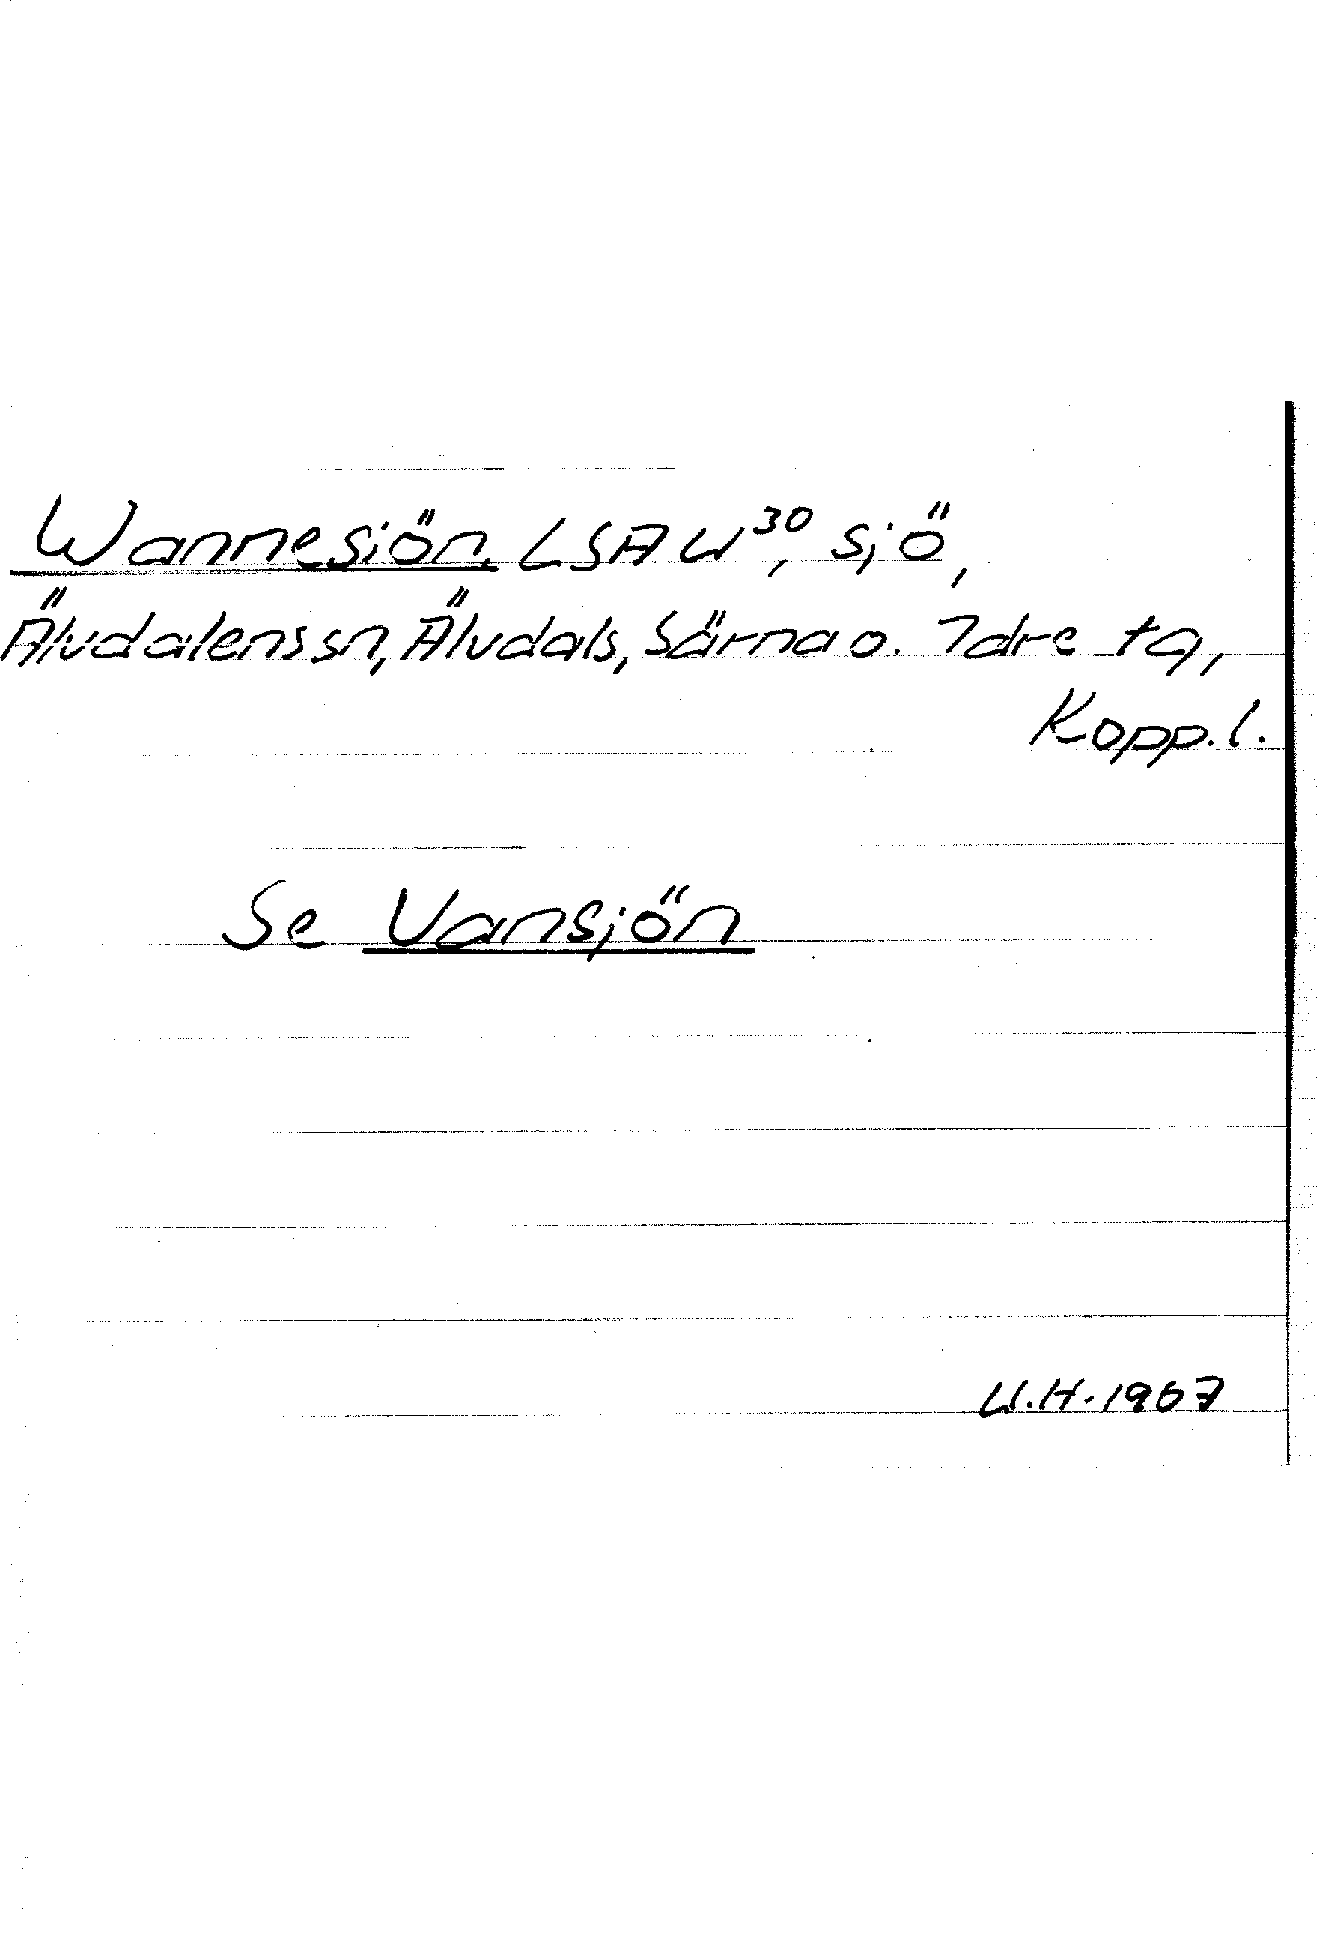 Wannesiön, LSA W 30, sjö,
Älvdalens sn, Älvdals, Särna o. Idre tg,
Kopp. l.
Se Vansjön
W.H. 1967